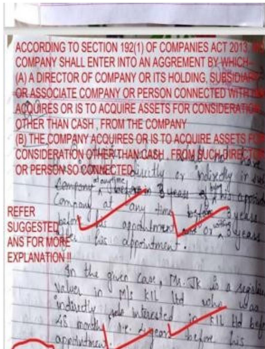 ACCORDING TO SECTION 192(1) OF COMPANIES ACT 2013
COMPANY SHALL ENTER INTO AN AGGREMENT BY WHICH-
(A) A DIRECTOR OF COMPANY OR ITS HOLDING, SUBSIDIARY
OR ASSOCIATE COMPANY OR PERSON CONNECTED WITH
ACQUIRES OR IS TO ACQUIRE ASSETS FOR CONSIDERATION
OTHER THAN CASH , FROM THE COMPANY
(B) THE COMPANY ACQUIRES OR IS TO ACQUIRE ASSETS FOR
CONSIDERATION OTHER THAN CASH , FROM SUCH DIRECTOR
OR PERSON SO CONNECTED
directly or indirectly in
Company
Company at any time before 3 years
his appointment or 3 years
his appointment.
REFER
SUGGESTED
ANS FOR MORE
EXPLANATION !!
In the given Case, Mr. JK is a registered
Valuer in M/s KIL ltd who was
indirectly interested in KIL ltd before
his 2 years before his
appointment.